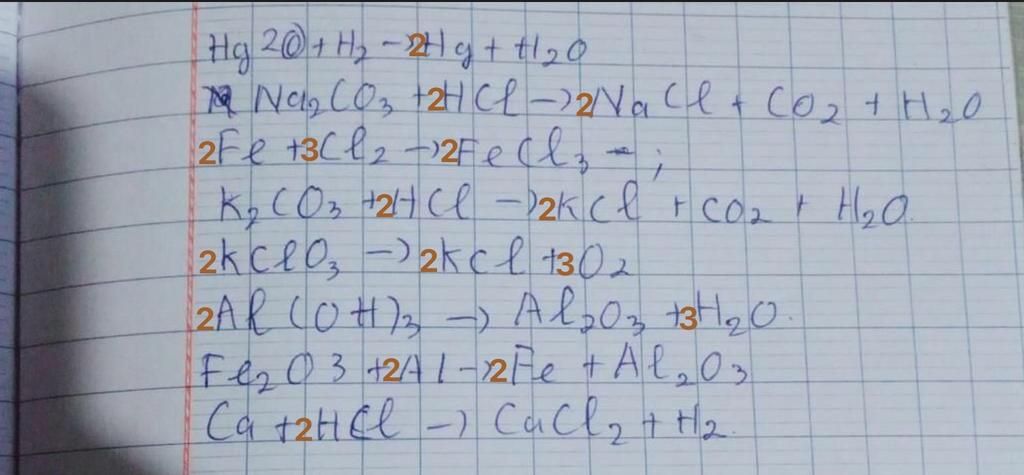 Hg2O + H2 → 2Hg + H2O
Na2CO3 + 2HCl → 2NaCl + CO2 + H2O
2Fe + 3Cl2 → 2FeCl3 - ;
K2CO3 + 2HCl → 2KCl + CO2 + H2O.
2KClO3 → 2KCl + 3O2
2Al(OH)3 → Al2O3 + 3H2O.
Fe2O3 + 2Al → 2Fe + Al2O3
Ca + 2HCl → CaCl2 + H2.